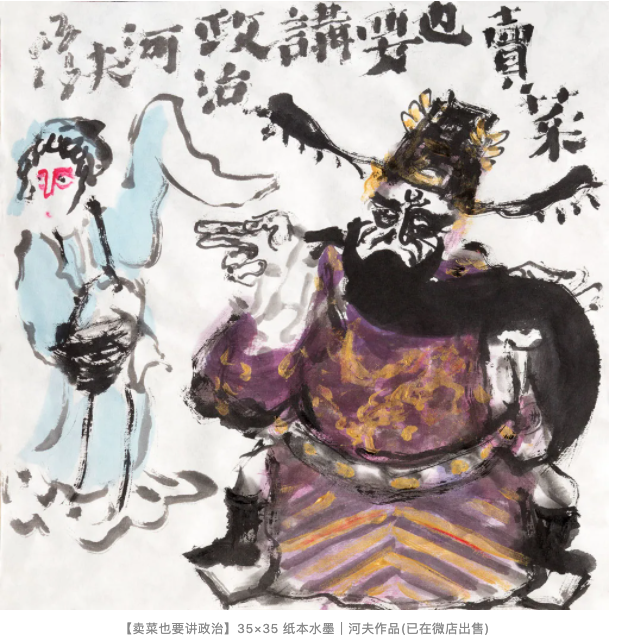 賣菜
也要講政治
河夫
【卖菜也要讲政治】35×35 纸本水墨｜河夫作品(已在微店出售)